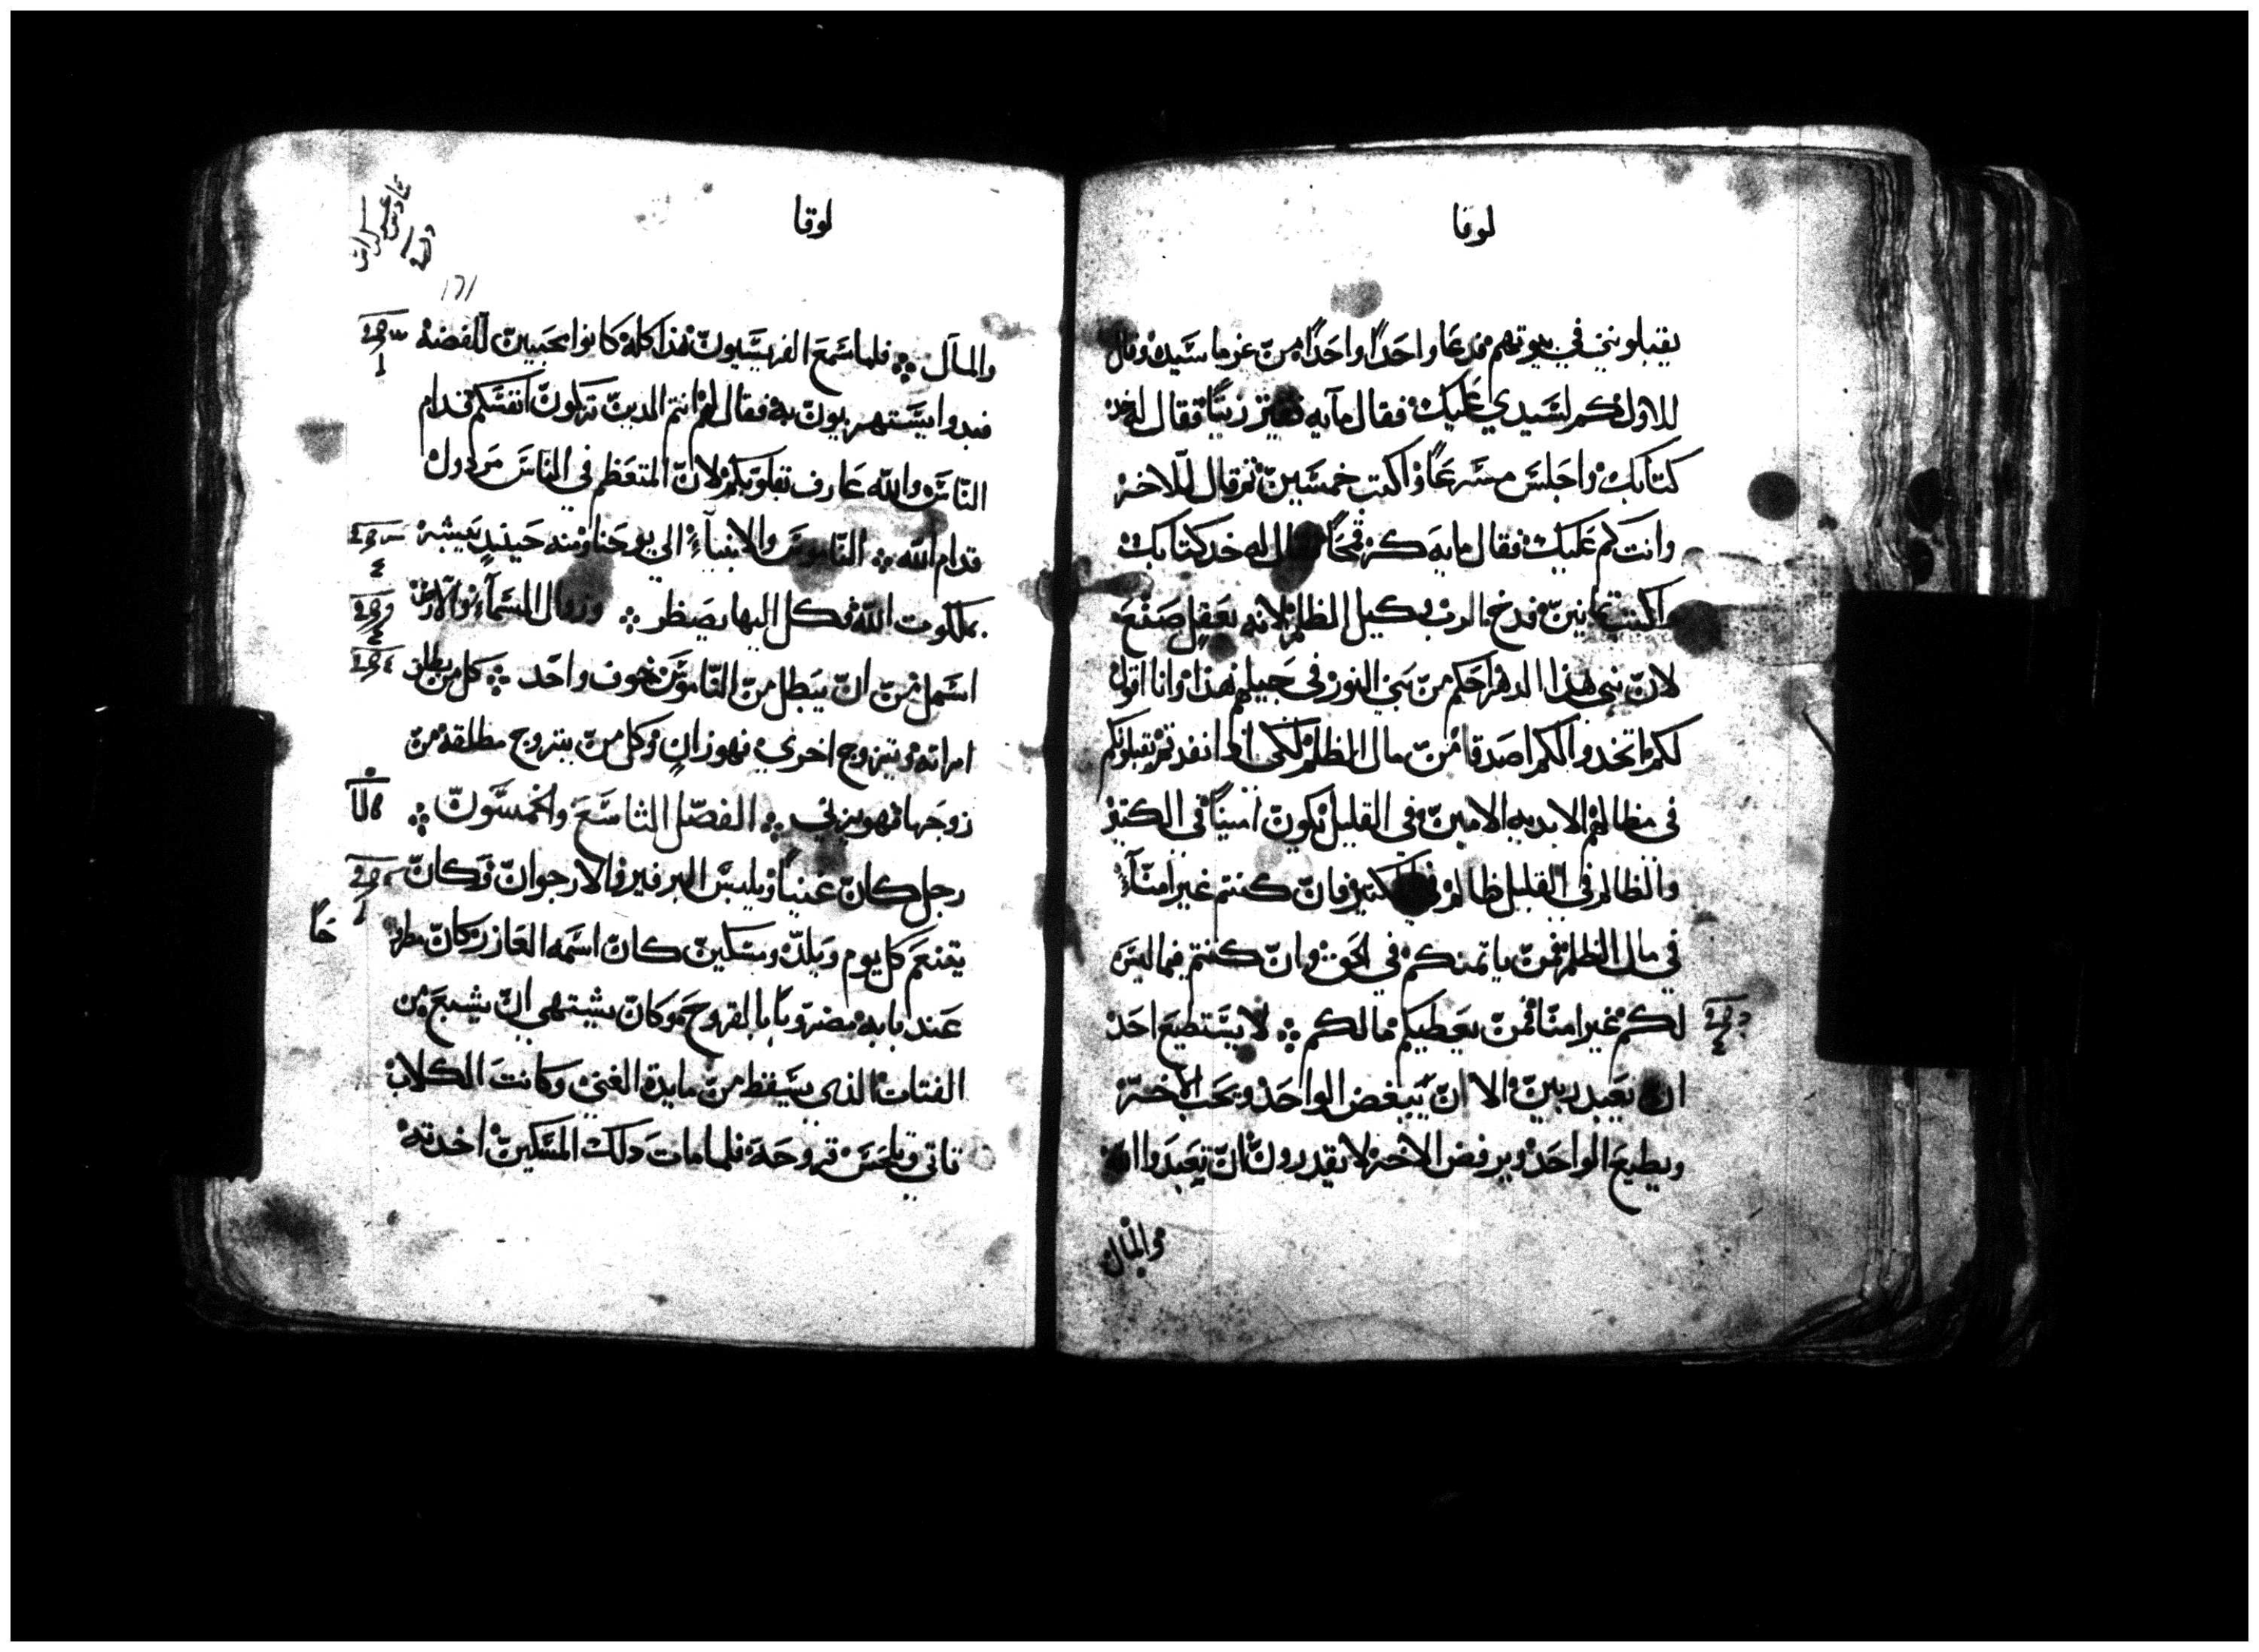 لوقا
يقبلوني في بيوتهم فدعا واحدًا واحدًا من غرما سيده وقال
للاول كم لسيدي عليك فقال مايه زيتًا فقال له خد
كتابك واجلس مسرعًا واكتب خمسين ثم قال للاخر
وانت كم عليك فقال مايه كر قمحًا له خد كتابك
واكتب ثمانين فمدح الرب وكيل الظلم لانه بعقل صنع
لان بني هذا الدهر احكم من بني النور في جيلهم هذا وانا اقول
لكم اتخدوا لكم اصدقا من مال الظلم لكي اذا نفد تم يقبلونكم
في مظالهم الابديه الامين في القليل يكون امينًا في الكتير
والظالم في القليل ظالم في الكتير فان كنتم غير امنآء
في مال الظلم فمن ياتمنكم في الحق وان كنتم فيما ليس
لكم غير امنا فمن يعطيكم مالكم ܀ لا يستطيع احد
ان يعبد ربين الا ان يبغض الواحد ويحب الاخر
ويطيع الواحد ويرفض الاخر لا تقدرون ان تعبدوا الله
والمال
لوقا
١٦١
والمال ܀ فلما سمع الفريسيون هذا كله كانوا محبين للفضه
فبدوا يستهزيون به فقال لهم انتم الدين تزكون انفسكم قدام
الناس والله عارف بقلوبكم لان المتعظم في الناس مردول
قدام الله ܀ الناموس والانبيآء الي يوحنا ومنه حينيد يبشر
بملكوت الله وكل اليها يضطر ܀ وزوال السمآء والارض
اسهل من ان يبطل من الناموس حرف واحد ܀ كل من يطلق
امراته ويتزوج اخري فهو زان وكل من يتزوج مطلقه من
زوجها فهو يزني ܀ الفصل التاسع والخمسون ܀
رجل كان غنيًا ويلبس البرفير والارجوان وكان
يتنعم كل يوم ويلد ومسكين كان اسمه العازر كان مطروح
عند بابه مضروبًا بالقروح وكان يشتهي ان يشبع من
الفتات الذي يسقط من مايدة الغني وكانت الكلاب
تاتي وتلحس قروحه فلما مات دلك المسكين اخدته